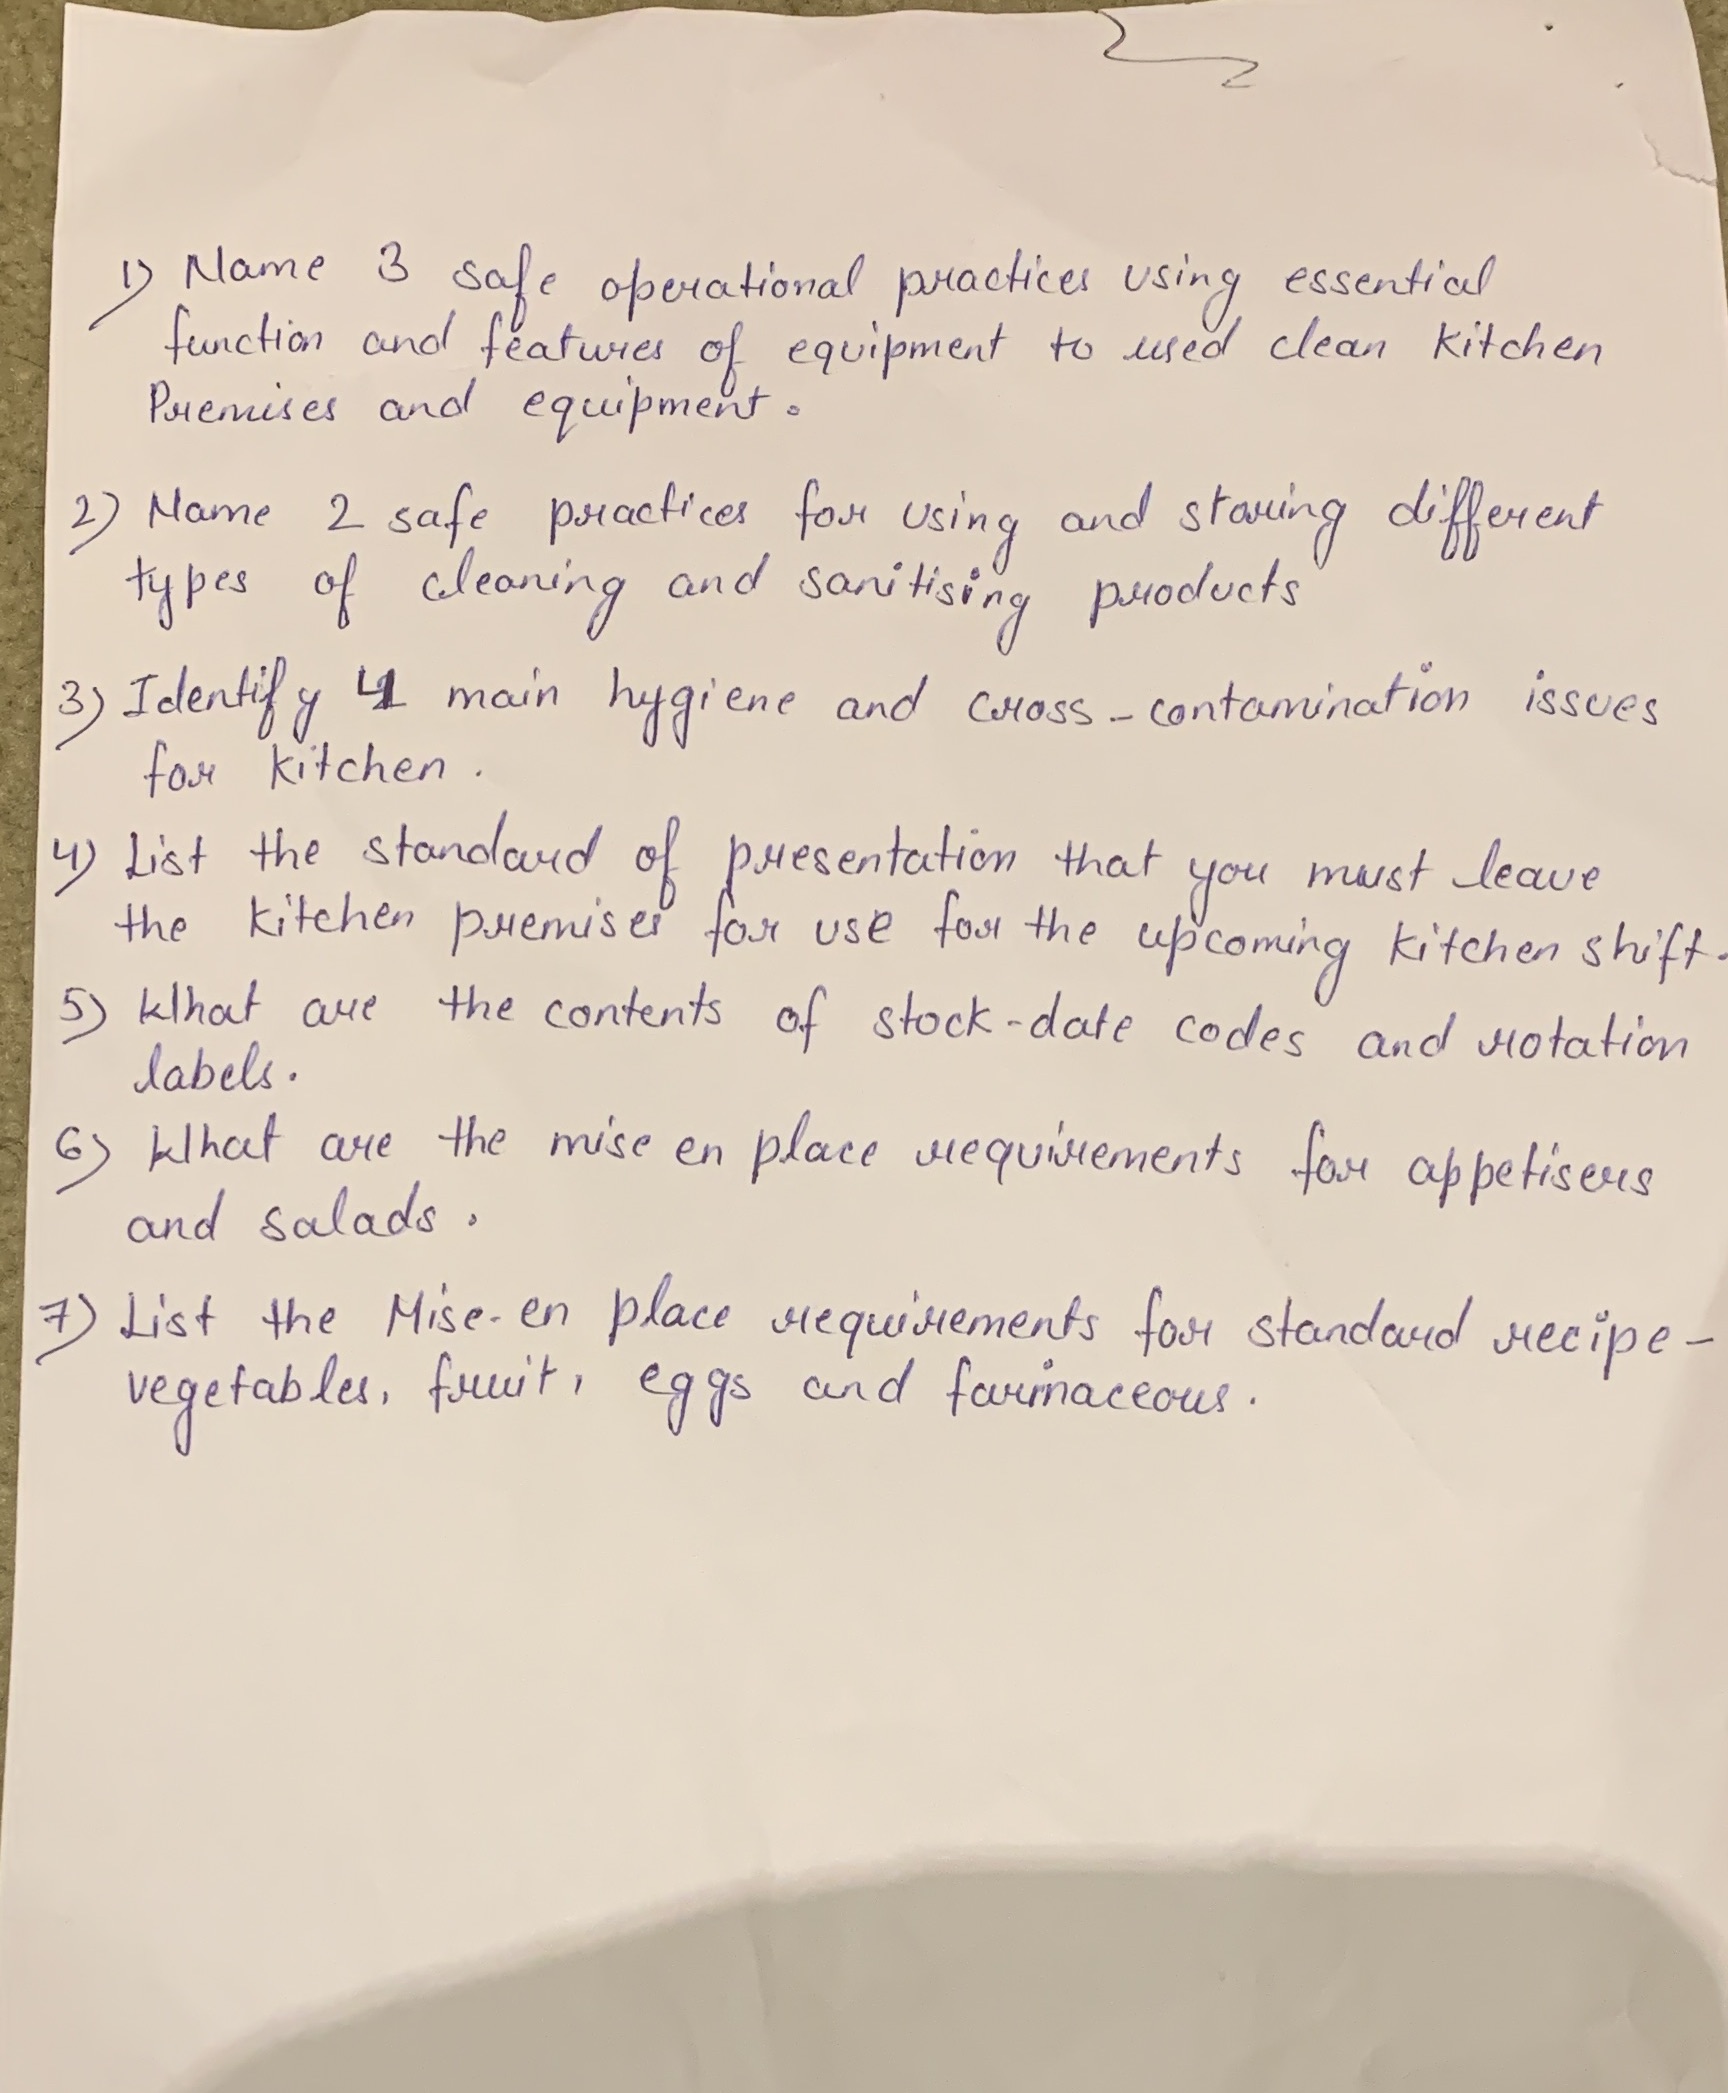 1) Name 3 safe operational practices using essential
function and features of equipment to used clean kitchen
Premises and equipment.
2) Name 2 safe practices for using and storing different
types of cleaning and sanitising products
3) Identify 4 main hygiene and cross-contamination issues
for kitchen.
4) List the standard of presentation that you must leave
the kitchen premises for use for the upcoming kitchen shift.
5) What are the contents of stock-date codes and rotation
labels.
6) What are the mise en place requirements for appetisers
and salads.
7) List the Mise-en place requirements for standard recipe-
vegetables, fruit, eggs and farinaceous.